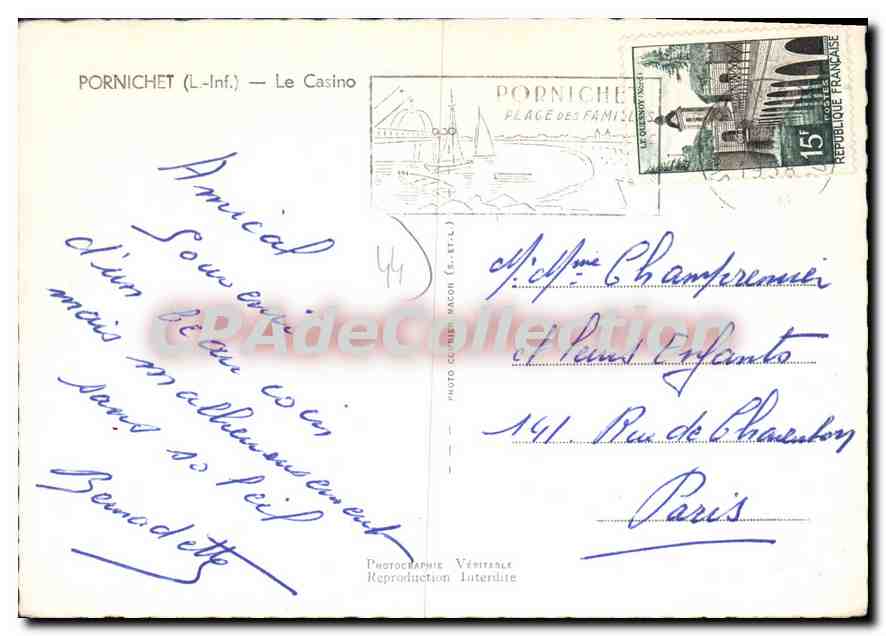 PORNICHET (L.-Inf.) — Le Casino
Amical
Souvenir
d'un beau coin
mais malheureusement
sans soleil
Bernadette
44
PORNICHET
PLAGE DES FAMILLES
LE QUESNOY (Nord)
15F
POSTES
REPUBLIQUE FRANÇAISE
1958
PHOTO COMBIER MACON (S.-ET-L.)
Mr Mme Champremier
et leurs Enfants
141. Rue de Charenton
Paris
PHOTOGRAPHIE VÉRITABLE
Reproduction Interdite
CPAdeCollection.com